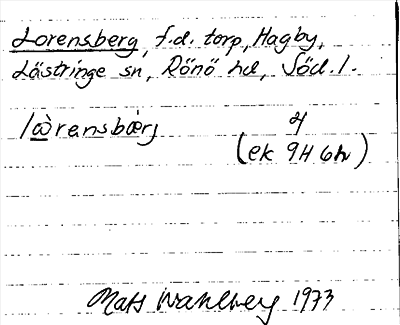 Lorensberg, f.d. torp, Hagby,
Lästringe sn, Rönö hd, Söd. l.
4
(ek 9H 6h)
Mats Wahlberg 1973